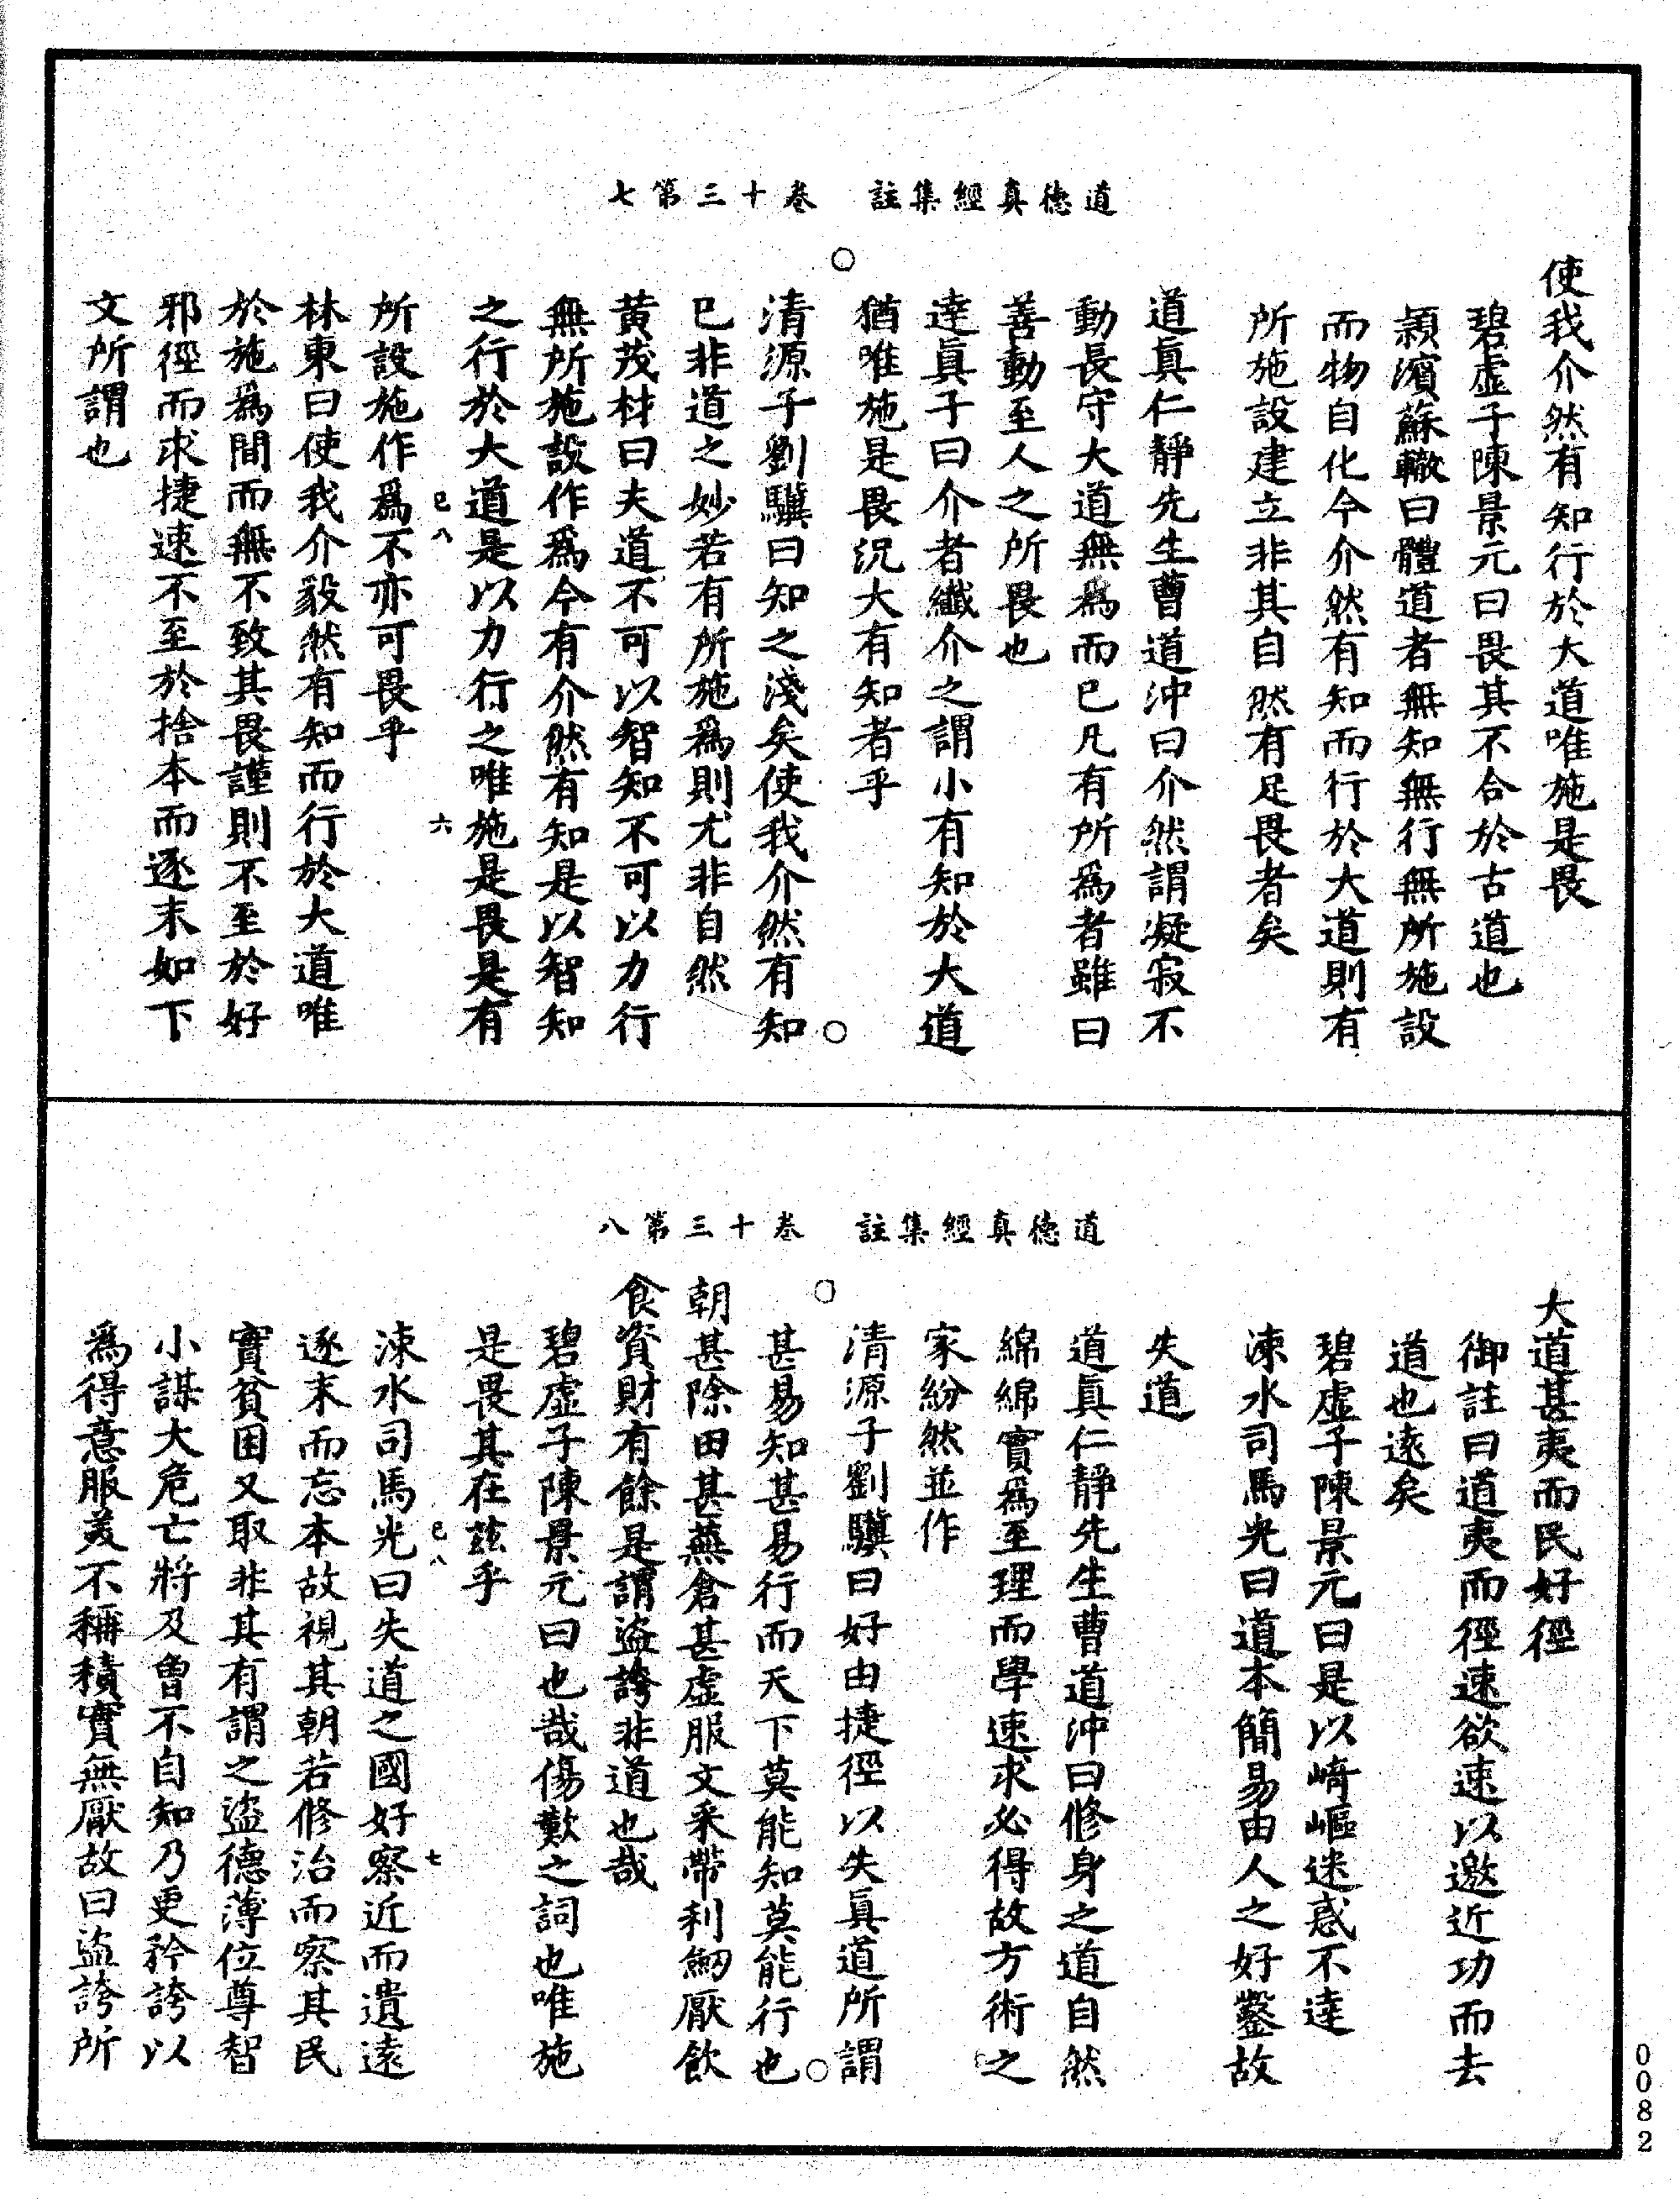 道德真經集註　卷十三第七
使我介然有知行於大道唯施是畏
碧虛子陳景元曰畏其不合於古道也
潁濱蘇轍曰體道者無知無行無所施設
而物自化今介然有知而行於大道則有
所施設建立非其自然有足畏者矣
道真仁靜先生曹道沖曰介然謂凝寂不
動長守大道無為而已凡有所為者雖曰
善動至人之所畏也
達真子曰介者纖介之謂小有知於大道
猶唯施是畏況大有知者乎
清源子劉驥曰知之淺矣使我介然有知
已非道之妙若有所施為則尤非自然
黃茂材曰夫道不可以智知不可以力行
無所施設作為今有介然有知是以智知
之行於大道是以力行之唯施是畏是有
己八　六
所設施作為不亦可畏乎
林東曰使我介毅然有知而行於大道唯
於施為間而無不致其畏謹則不至於好
邪徑而求捷速不至於捨本而逐末如下
文所謂也
道德真經集註　卷十三第八
大道甚夷而民好徑
御註曰道夷而徑速欲速以邀近功而去
道也遠矣
碧虛子陳景元曰是以崎嶇迷惑不達
涑水司馬光曰道本簡易由人之好鑿故
失道
道真仁靜先生曹道沖曰修身之道自然
綿綿實為至理而學速求必得故方術之
家紛然並作
清源子劉驥曰好由捷徑以失真道所謂
甚易知甚易行而天下莫能知莫能行也
朝甚除田甚蕪倉甚虛服文采帶利劒厭飲
食資財有餘是謂盜誇非道也哉
碧虛子陳景元曰也哉傷歎之詞也唯施
是畏其在茲乎
己八　七
涑水司馬光曰失道之國好察近而遺遠
逐末而忘本故視其朝若修治而察其民
實貧困又取非其有謂之盜德薄位尊智
小謀大危亡將及曾不自知乃更矜誇以
為得意服美不稱積實無厭故曰盜誇所
0082